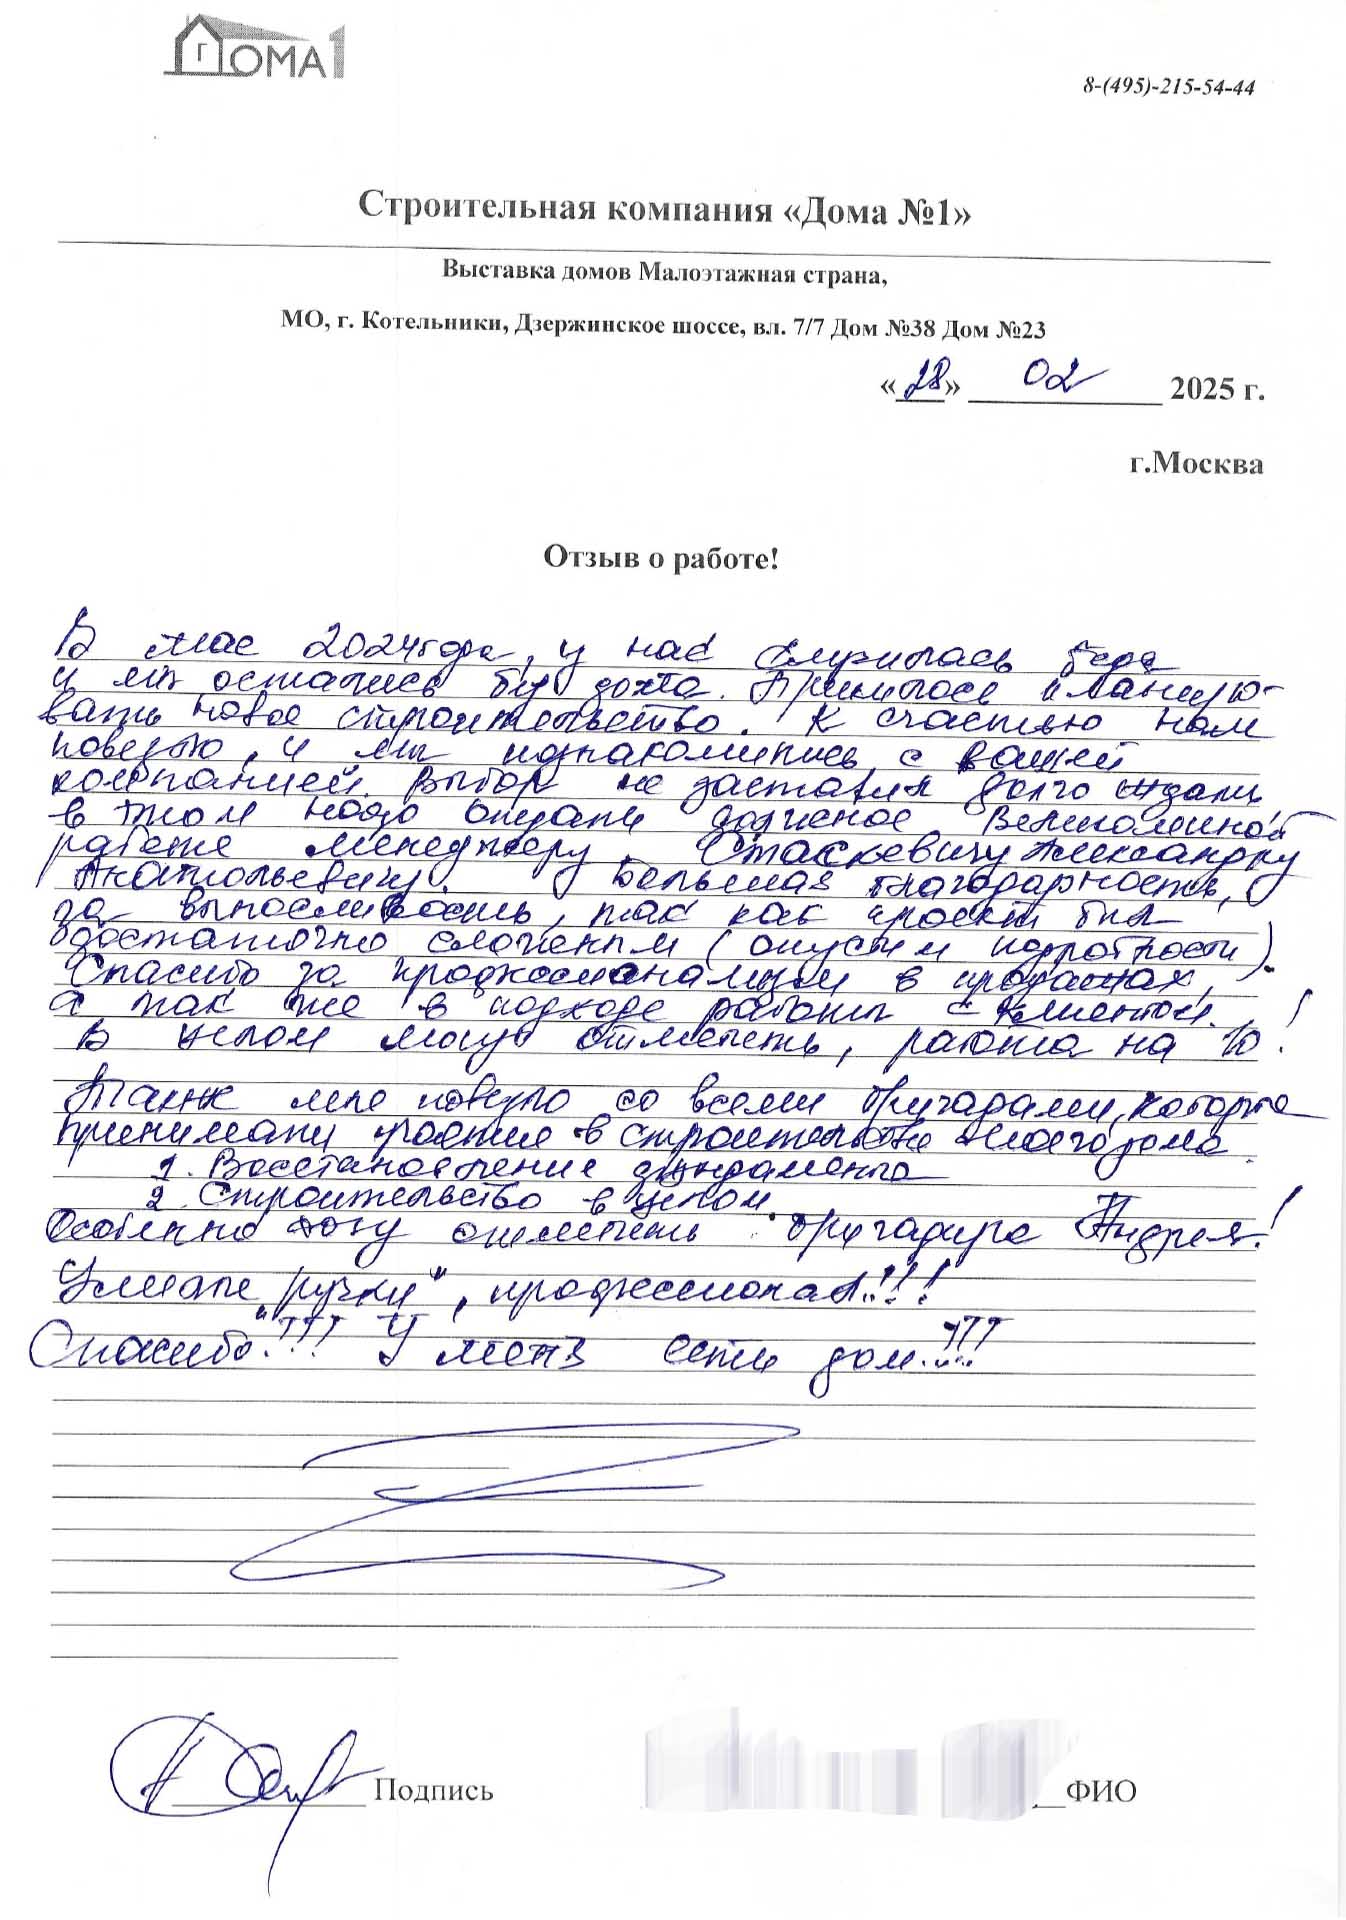 Дома1
8-(495)-215-54-44
Строительная компания «Дома №1»
Выставка домов Малоэтажная страна,
МО, г. Котельники, Дзержинское шоссе, вл. 7/7 Дом №38 Дом №23
«28» 02 2025 г.
г.Москва
Отзыв о работе!
В мае 2024года, у нас случилась беда
и мы остались без дома. Пришлось планиро-
вать новое строительство. К счастью нам
повезло, и мы познакомились с вашей
компанией. Выбор не заставил долго ждать,
в этом надо отдать должное великолепной
работе менеджеру Сташкевичу Александру
Анатольевичу. Большая благодарность,
за выносливость, так как проект был
достаточно сложным (опустим подробности).
Спасибо за профессионализм в продажах,
а так же в подходе работы с клиентом.
В целом могу отметить, работа на 10!
Также мне повезло со всеми бригадами, которые
принимали участие в строительстве моего дома.
1. Восстановление фундамента
2. Строительство в целом.
Особенно хочу отметить бригадира Андрея!
Умелые "ручки", профессионал!!!
Спасибо!!! У меня есть дом!!!
Подпись
ФИО